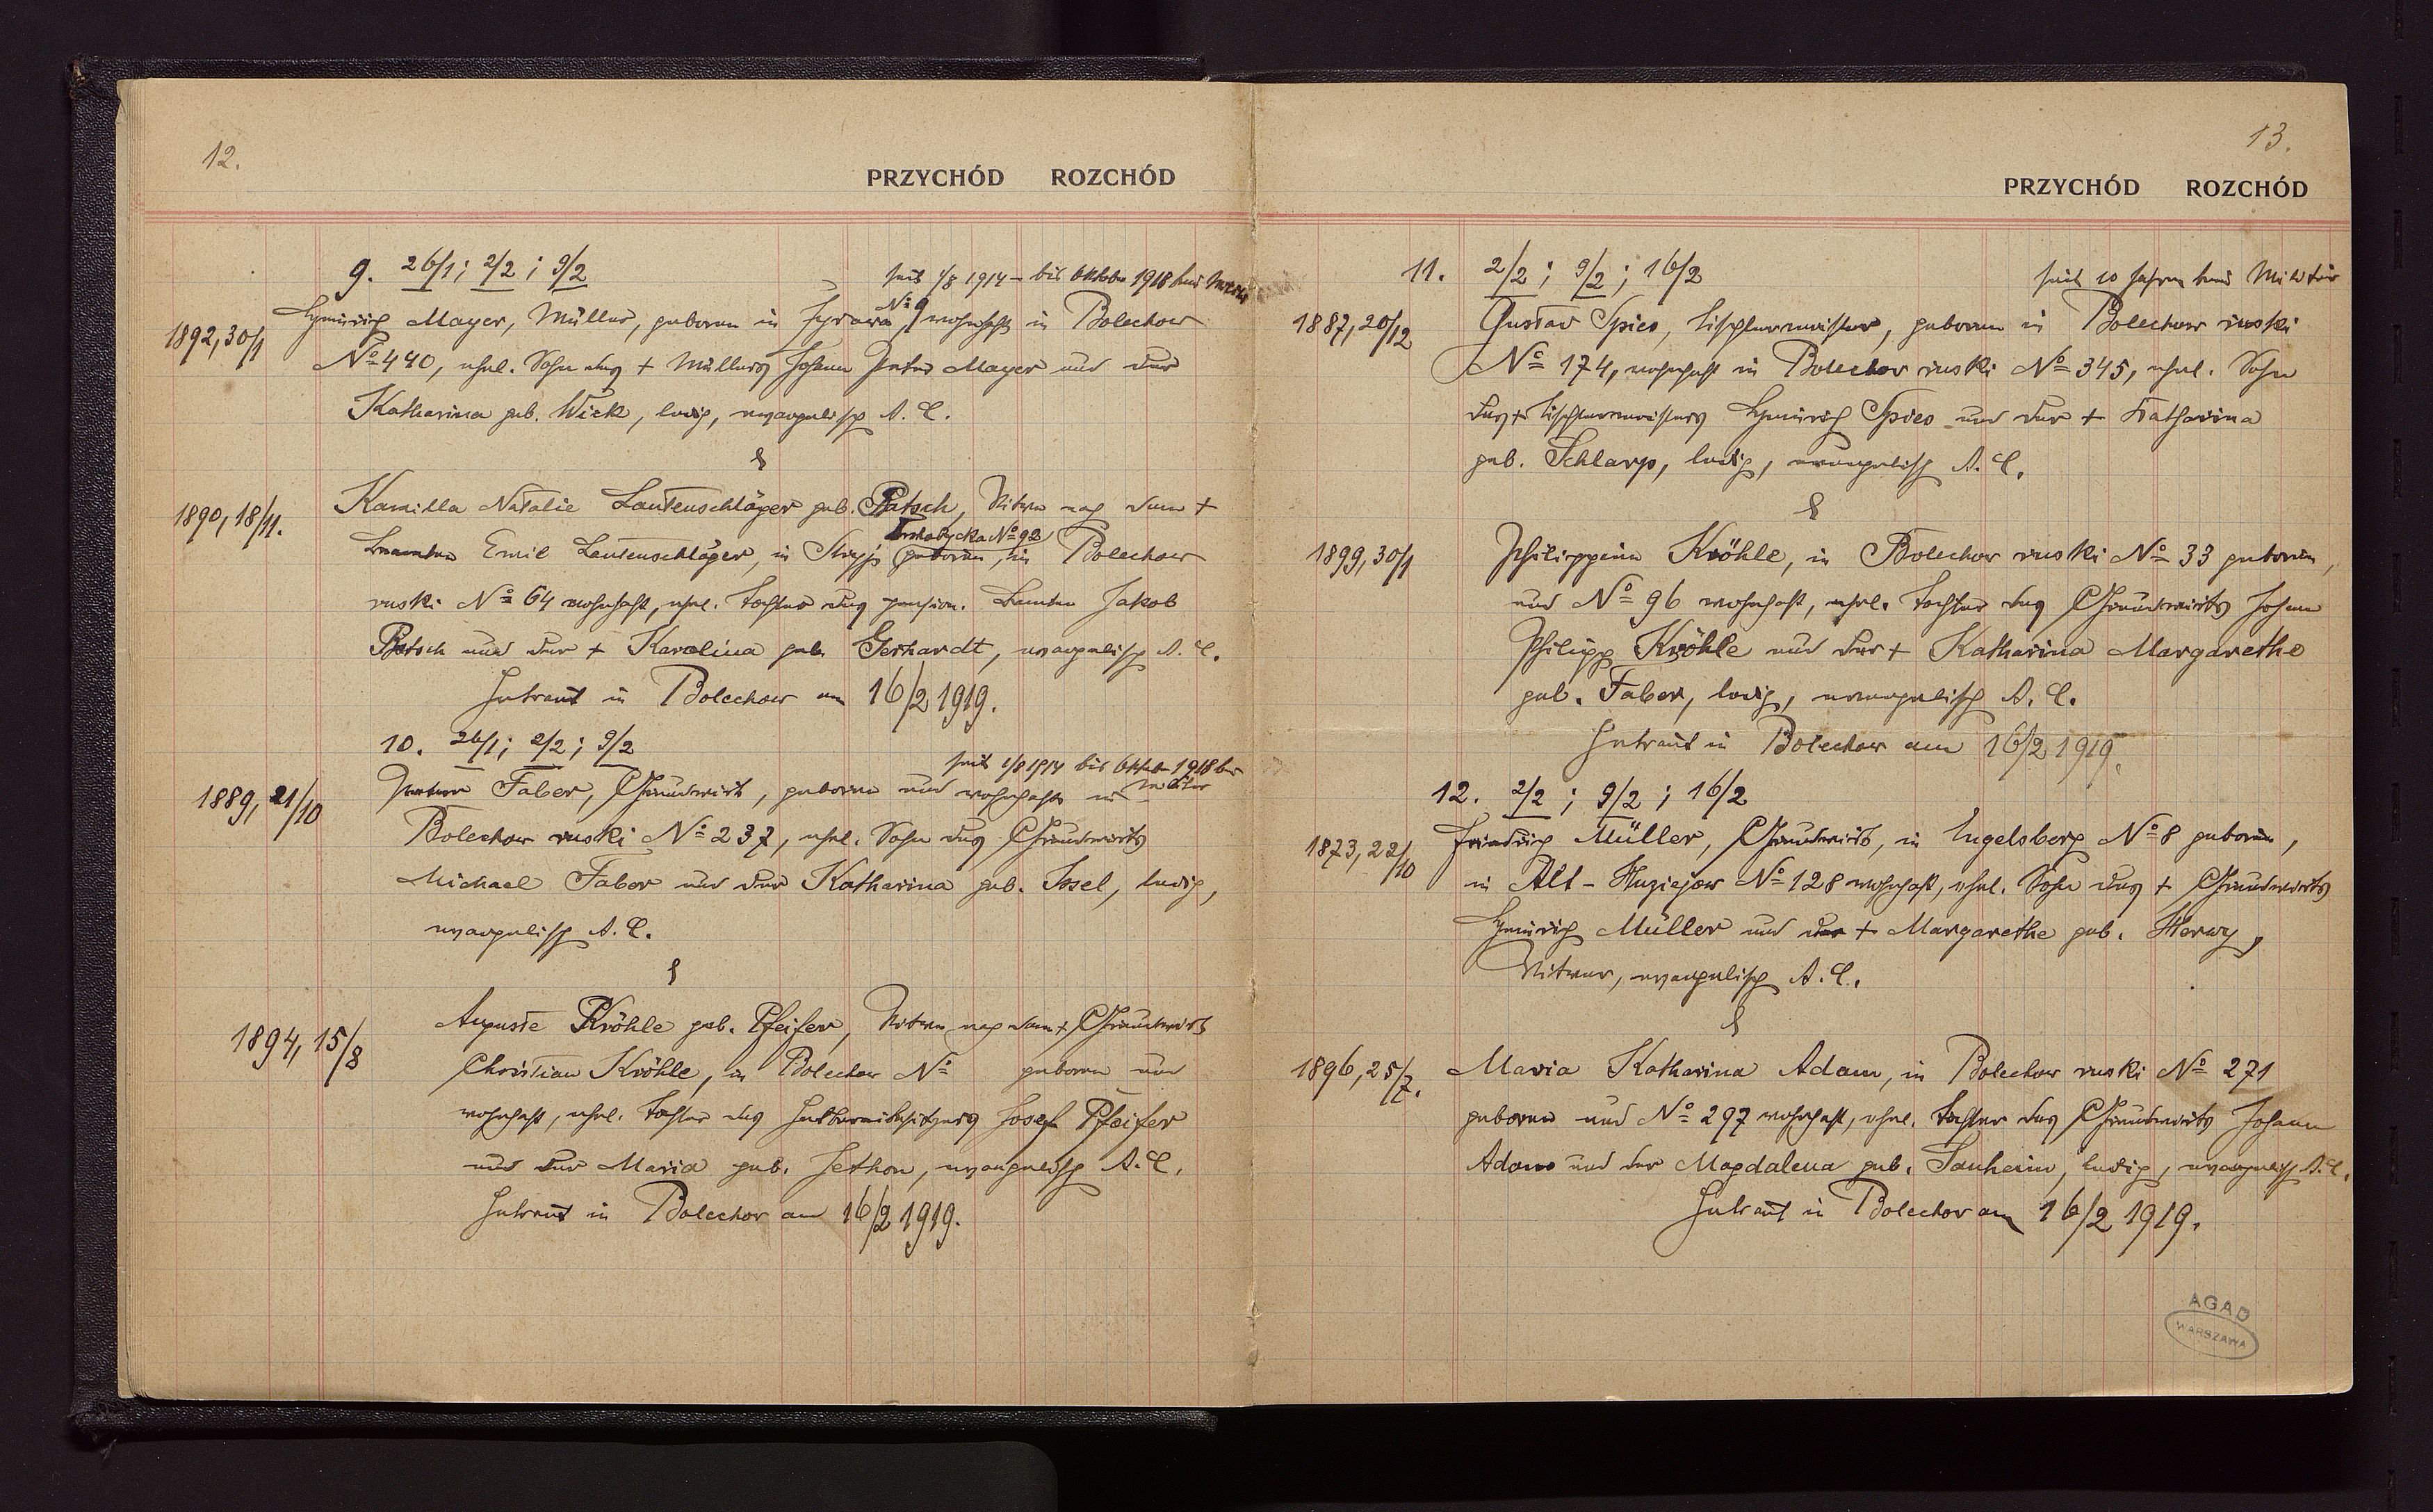 12.
PRZYCHÓD ROZCHÓD
9. 26/1; 2/2; 9/2
seit 1/8 1914 – bis Oktober 1918 beim Militär
No 9
1892, 30/1
Heinrich Mayer, Müller, geboren in wohnhaft in Bolechow
No 440, ehel. Sohn des + Müllers Johann Peter Mayer und der
Katharina geb. Wick, ledig, evangelisch A. C.
&
1890, 18/11.
Kamilla Natalie Lautenschläger geb. Patsch, Witwe nach dem +
No 92
Beamten Emil Lautenschläger, in Stryj geboren, in Bolechow
ruski No 64 wohnhaft, ehel. Tochter des pension. Beamten Jakob
Patsch und der + Karolina geb. Gerhardt, evangelisch A. C.
Getraut in Bolechow am 16/2 1919.
10. 26/1; 2/2; 9/2
seit 1/8 1914 bis Oktob. 1918 bei
Militär
1889, 21/10
Faber, Grundwirt, geboren und wohnhaft in
Bolechow ruski No 237, ehel. Sohn des Grundwirts
Michael Faber und der Katharina geb. Issel, ledig,
evangelisch A. C.
&
1894, 15/8
Auguste Kröhle geb. Pfeifer, Witwe nach dem + Grundwirt
Christian Kröhle, in Bolechow No geboren und
wohnhaft, ehel. Tochter des Josef Pfeifer
und der Maria geb. Jethon, evangelisch A. C.
Getraut in Bolechow am 16/2 1919.
13.
PRZYCHÓD ROZCHÓD
11. 2/2; 9/2; 16/2
seit 10 Jahren beim Militär
1887, 20/12
Gustav Spies, Tischlermeister, geboren in Bolechow ruski
No 174, wohnhaft in Bolechow ruski No 345, ehel. Sohn
des + Tischlermeisters Heinrich Spies und der + Katharina
geb. Schlarp, ledig, evangelisch A. C.
&
1899, 30/1
Philippine Kröhle, in Bolechow ruski No 33 geboren,
und No 96 wohnhaft, ehel. Tochter des Grundwirts Johann
Philipp Kröhle und der + Katharina Margarethe
geb. Faber, ledig, evangelisch A. C.
Getraut in Bolechow am 16/2 1919.
12. 2/2; 9/2; 16/2
1873, 22/10
Friedrich Müller, Grundwirt, in Engelsberg No 8 geboren,
in Alt-Huziejow No 128 wohnhaft, ehel. Sohn des + Grundwirts
Heinrich Müller und der + Margarethe geb. Herwy,
Witwer, evangelisch A. C.
&
1896, 25/7.
Maria Katharina Adam, in Bolechow ruski No 271
geboren und No 297 wohnhaft, ehel. Tochter des Grundwirts Johann
Adam und der Magdalena geb. Tanheim, ledig, evangelisch A. C.
Getraut in Bolechow am 16/2 1919.
AGAD
WARSZAWA